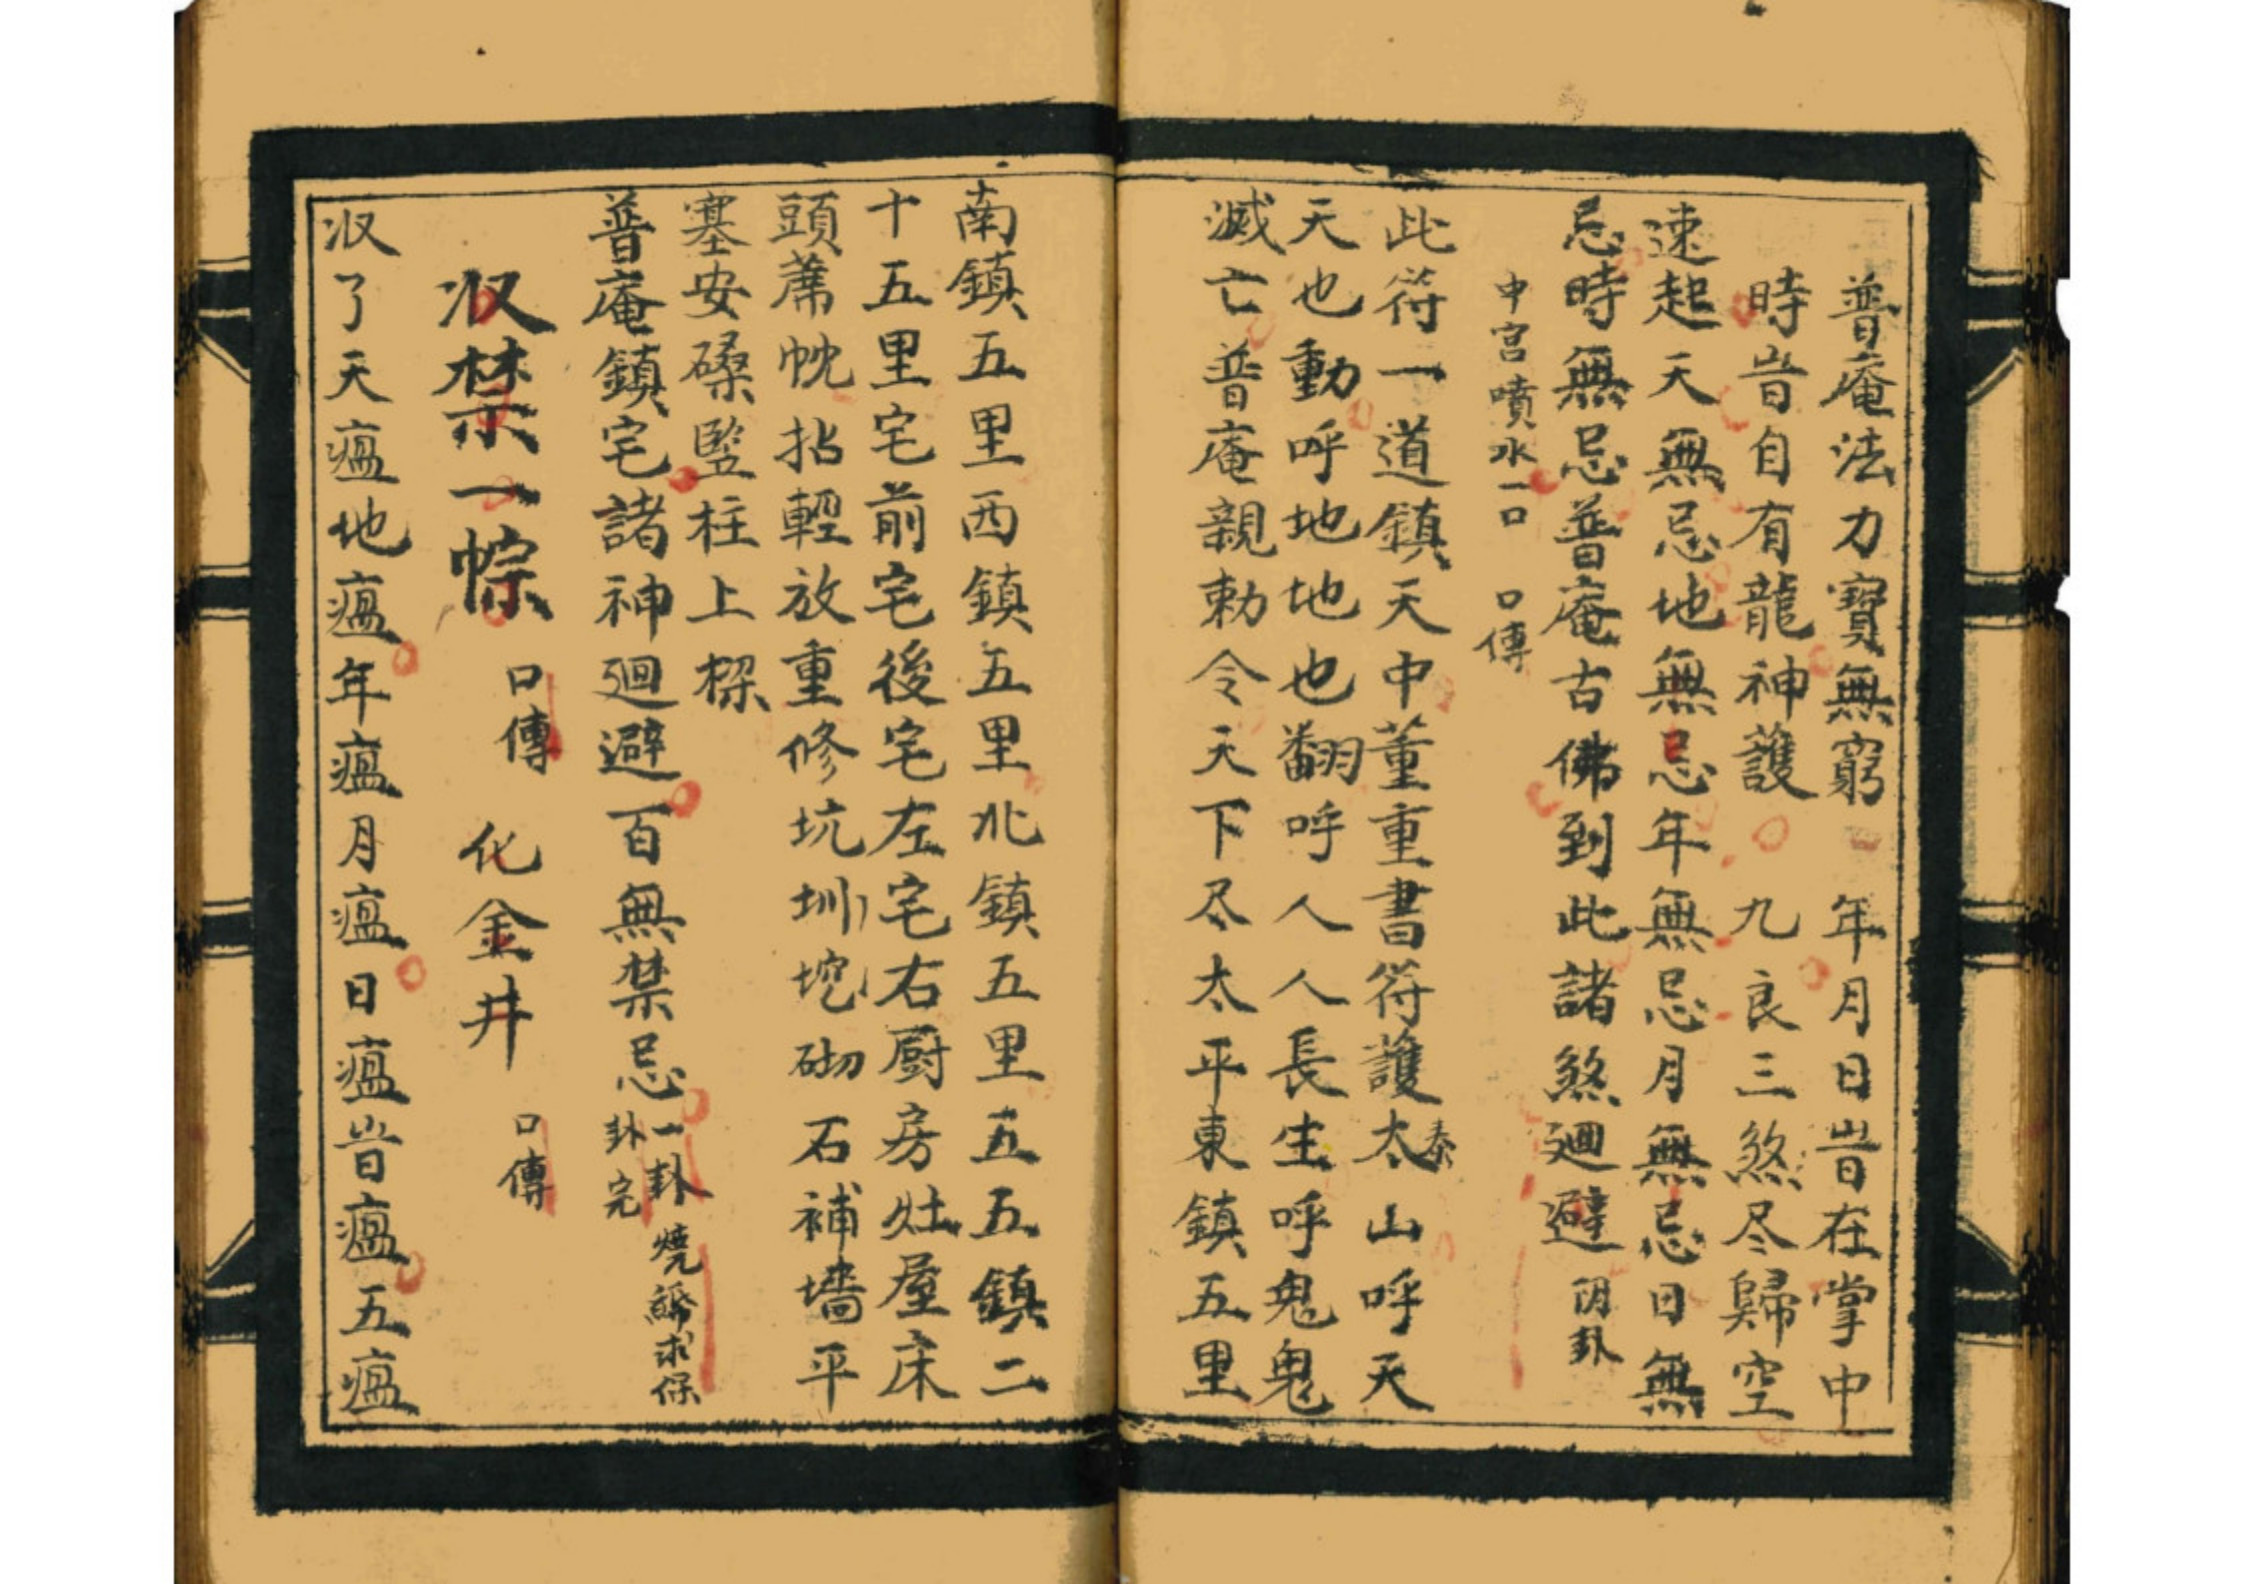 普庵法力寶無窮　年月日旹在掌中
時旹自有龍神護　九良三煞尽歸空
速起天無忌地無忌年無忌月無忌日無
忌時無忌普庵古佛到此諸煞廻避　阴卦
中宮噴水一口　口傳
此符一道鎮天中董重書符護太泰山呼天
天也動呼地地也翻呼人人長生呼鬼鬼
滅亡普庵親勅令天下尽太平東鎮五里
南鎮五里西鎮五里北鎮五里五五鎮二
十五里宅前宅後宅左宅右厨房灶屋床
頭蓆帨拈輕放重修坑圳挖砌石補墻平
塞安磉竪柱上樑
普庵鎮宅諸神廻避百無禁忌一卦燒 求保
卦完
収禁一幖　口傳　化金井　口傳
収了天瘟地瘟年瘟月瘟日瘟旹瘟五瘟